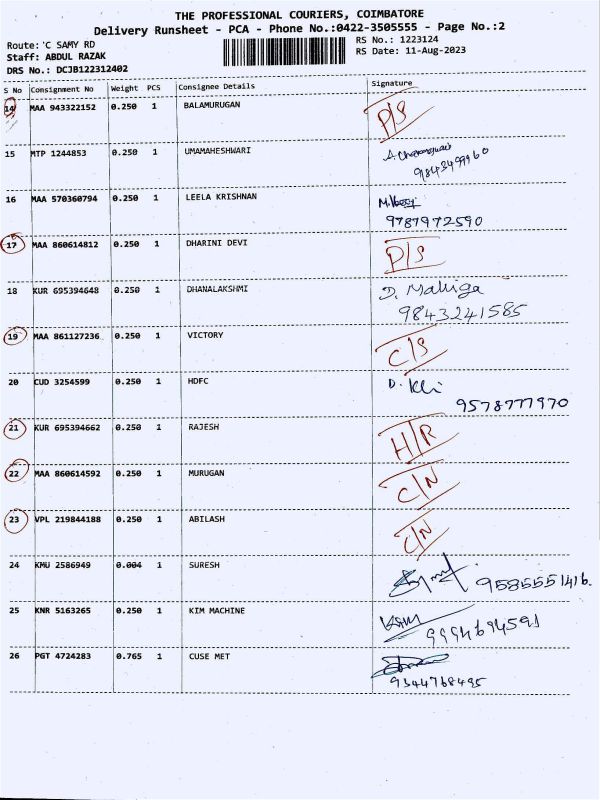 THE PROFESSIONAL COURIERS, COIMBATORE
Delivery Runsheet - PCA - Phone No.:0422-3505555 - Page No.:2
Route:'C SAMY RD RS No.: 1223124
Staff: ABDUL RAZAK RS Date: 11-Aug-2023
DRS No.: DCJB122312402
S No Consignment No Weight PCS Consignee Details Signature
14 MAA 943322152 0.250 1 BALAMURUGAN P/S
15 MTP 1244853 0.250 1 UMAMAHESHWARI
9843499960
16 MAA 570360794 0.250 1 LEELA KRISHNAN
9787972590
17 MAA 860614812 0.250 1 DHARINI DEVI P/S
18 KUR 695394648 0.250 1 DHANALAKSHMI D. Malliga
9843241585
19 MAA 861127236 0.250 1 VICTORY C/S
20 CUD 3254599 0.250 1 HDFC
9578777970
21 KUR 695394662 0.250 1 RAJESH H/R
22 MAA 860614592 0.250 1 MURUGAN C/N
23 VPL 219844188 0.250 1 ABILASH C/N
24 KMU 2586949 0.004 1 SURESH 9585551416.
25 KNR 5163265 0.250 1 KIM MACHINE 9994694591
26 PGT 4724283 0.765 1 CUSE MET
9344768495